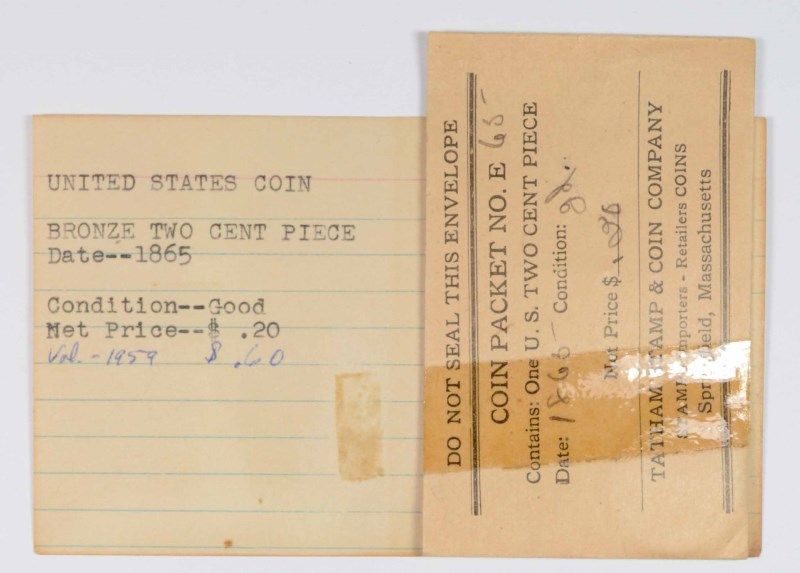 UNITED STATES COIN
BRONZE TWO CENT PIECE
Date--1865
Condition--Good
Net Price--$ .20
Val. - 1959 $ .60
DO NOT SEAL THIS ENVELOPE
COIN PACKET NO. E 65
Contains: One U. S. TWO CENT PIECE
Date: 1865 Condition: gd.
Net Price $ .20
TATHAM STAMP & COIN COMPANY
STAMP Importers - Retailers COINS
Springfield, Massachusetts